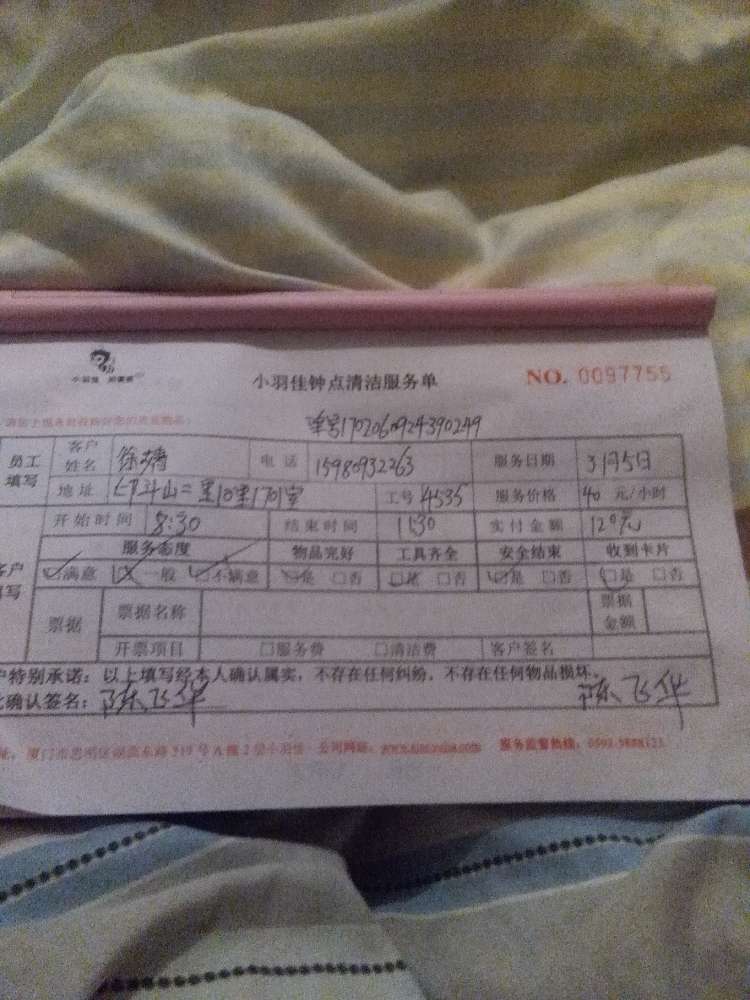 小羽佳
小羽佳钟点清洁服务单
NO. 0097755
单号1702060924390249
员工填写 客户姓名 徐 电话 15980932263 服务日期 3月5日
地址 山二里10 1701室 工号 4535 服务价格 40 元/小时
开始时间 8:30 结束时间 11:30 实付金额 120元
服务态度 物品完好 工具齐全 安全结束 收到卡片
☑满意 ☑一般 ☑不满意 ☑是 □否 ☑是 □否 ☑是 □否 ☑是 □否
票据 票据名称 票据金额
开票项目 □服务费 □清洁费 客户签名
户特别承诺:以上填写经本人确认属实,不存在任何纠纷,不存在任何物品损坏。
确认签名:陈飞华 陈飞华
厦门市思明区 东路319号A幢2层小羽佳 公司网站: 服务监督热线: